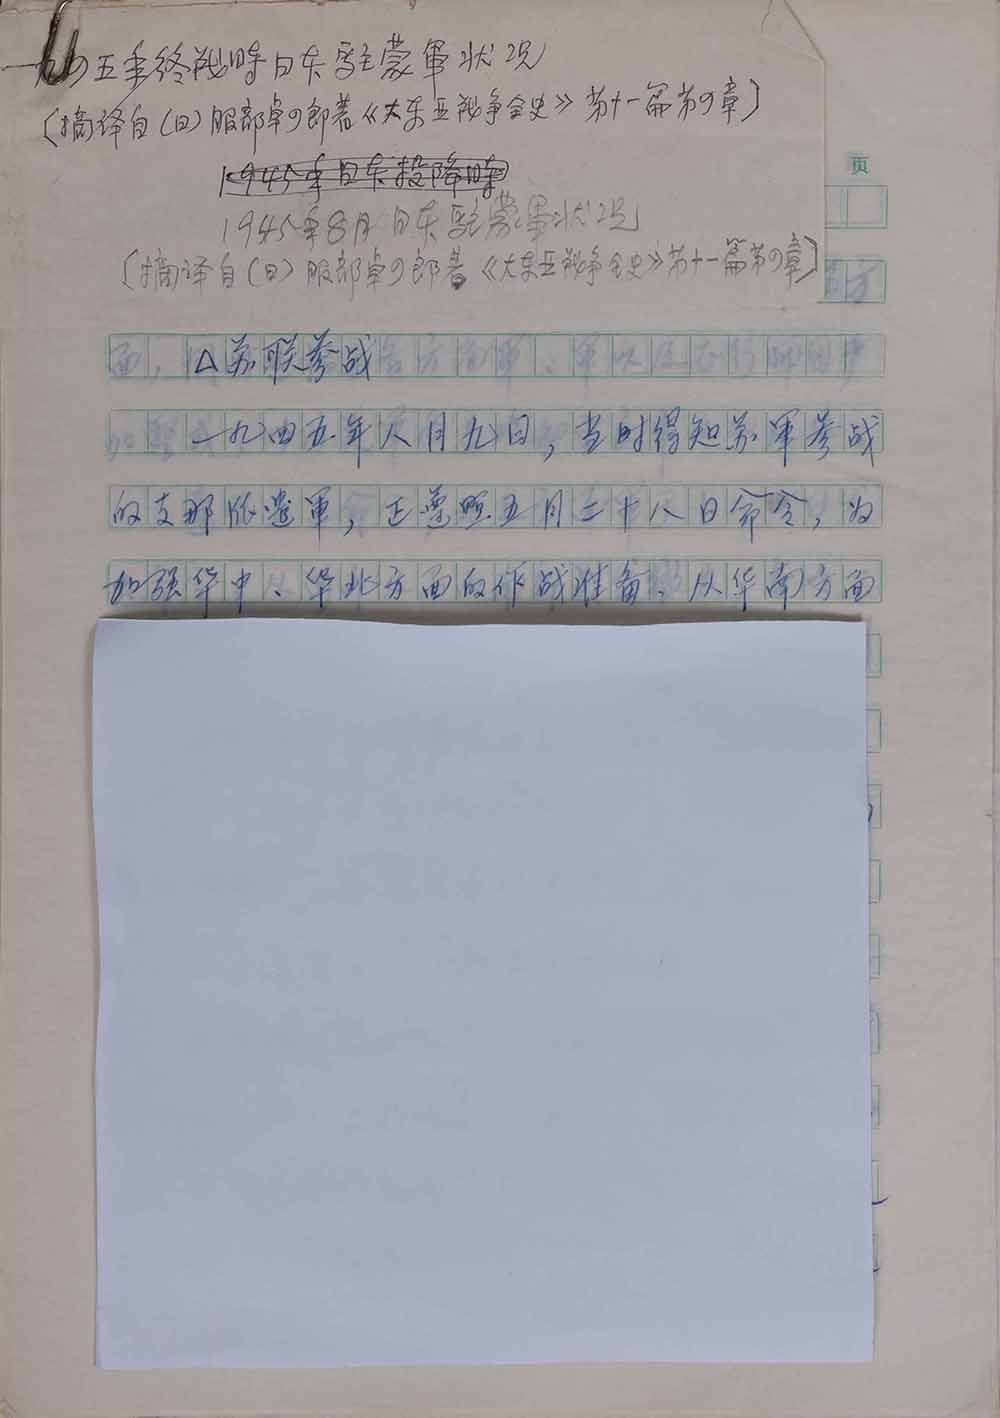 一九四五年终战时日本駐蒙軍状况
〔摘译自（日）服部卓四郎著《大东亚战争全史》第十一篇第四章〕
1945年日本投降时
1945年8月日本駐蒙軍状况
〔摘译自（日）服部卓四郎著《大东亚战争全史》第十一篇第四章〕
页
△苏联参战
一九四五年八月九日，当时得知苏军参战
的支那派遣軍，正遵照五月二十八日命令，为
加强华中、华北方面的作战准备、从华南方面